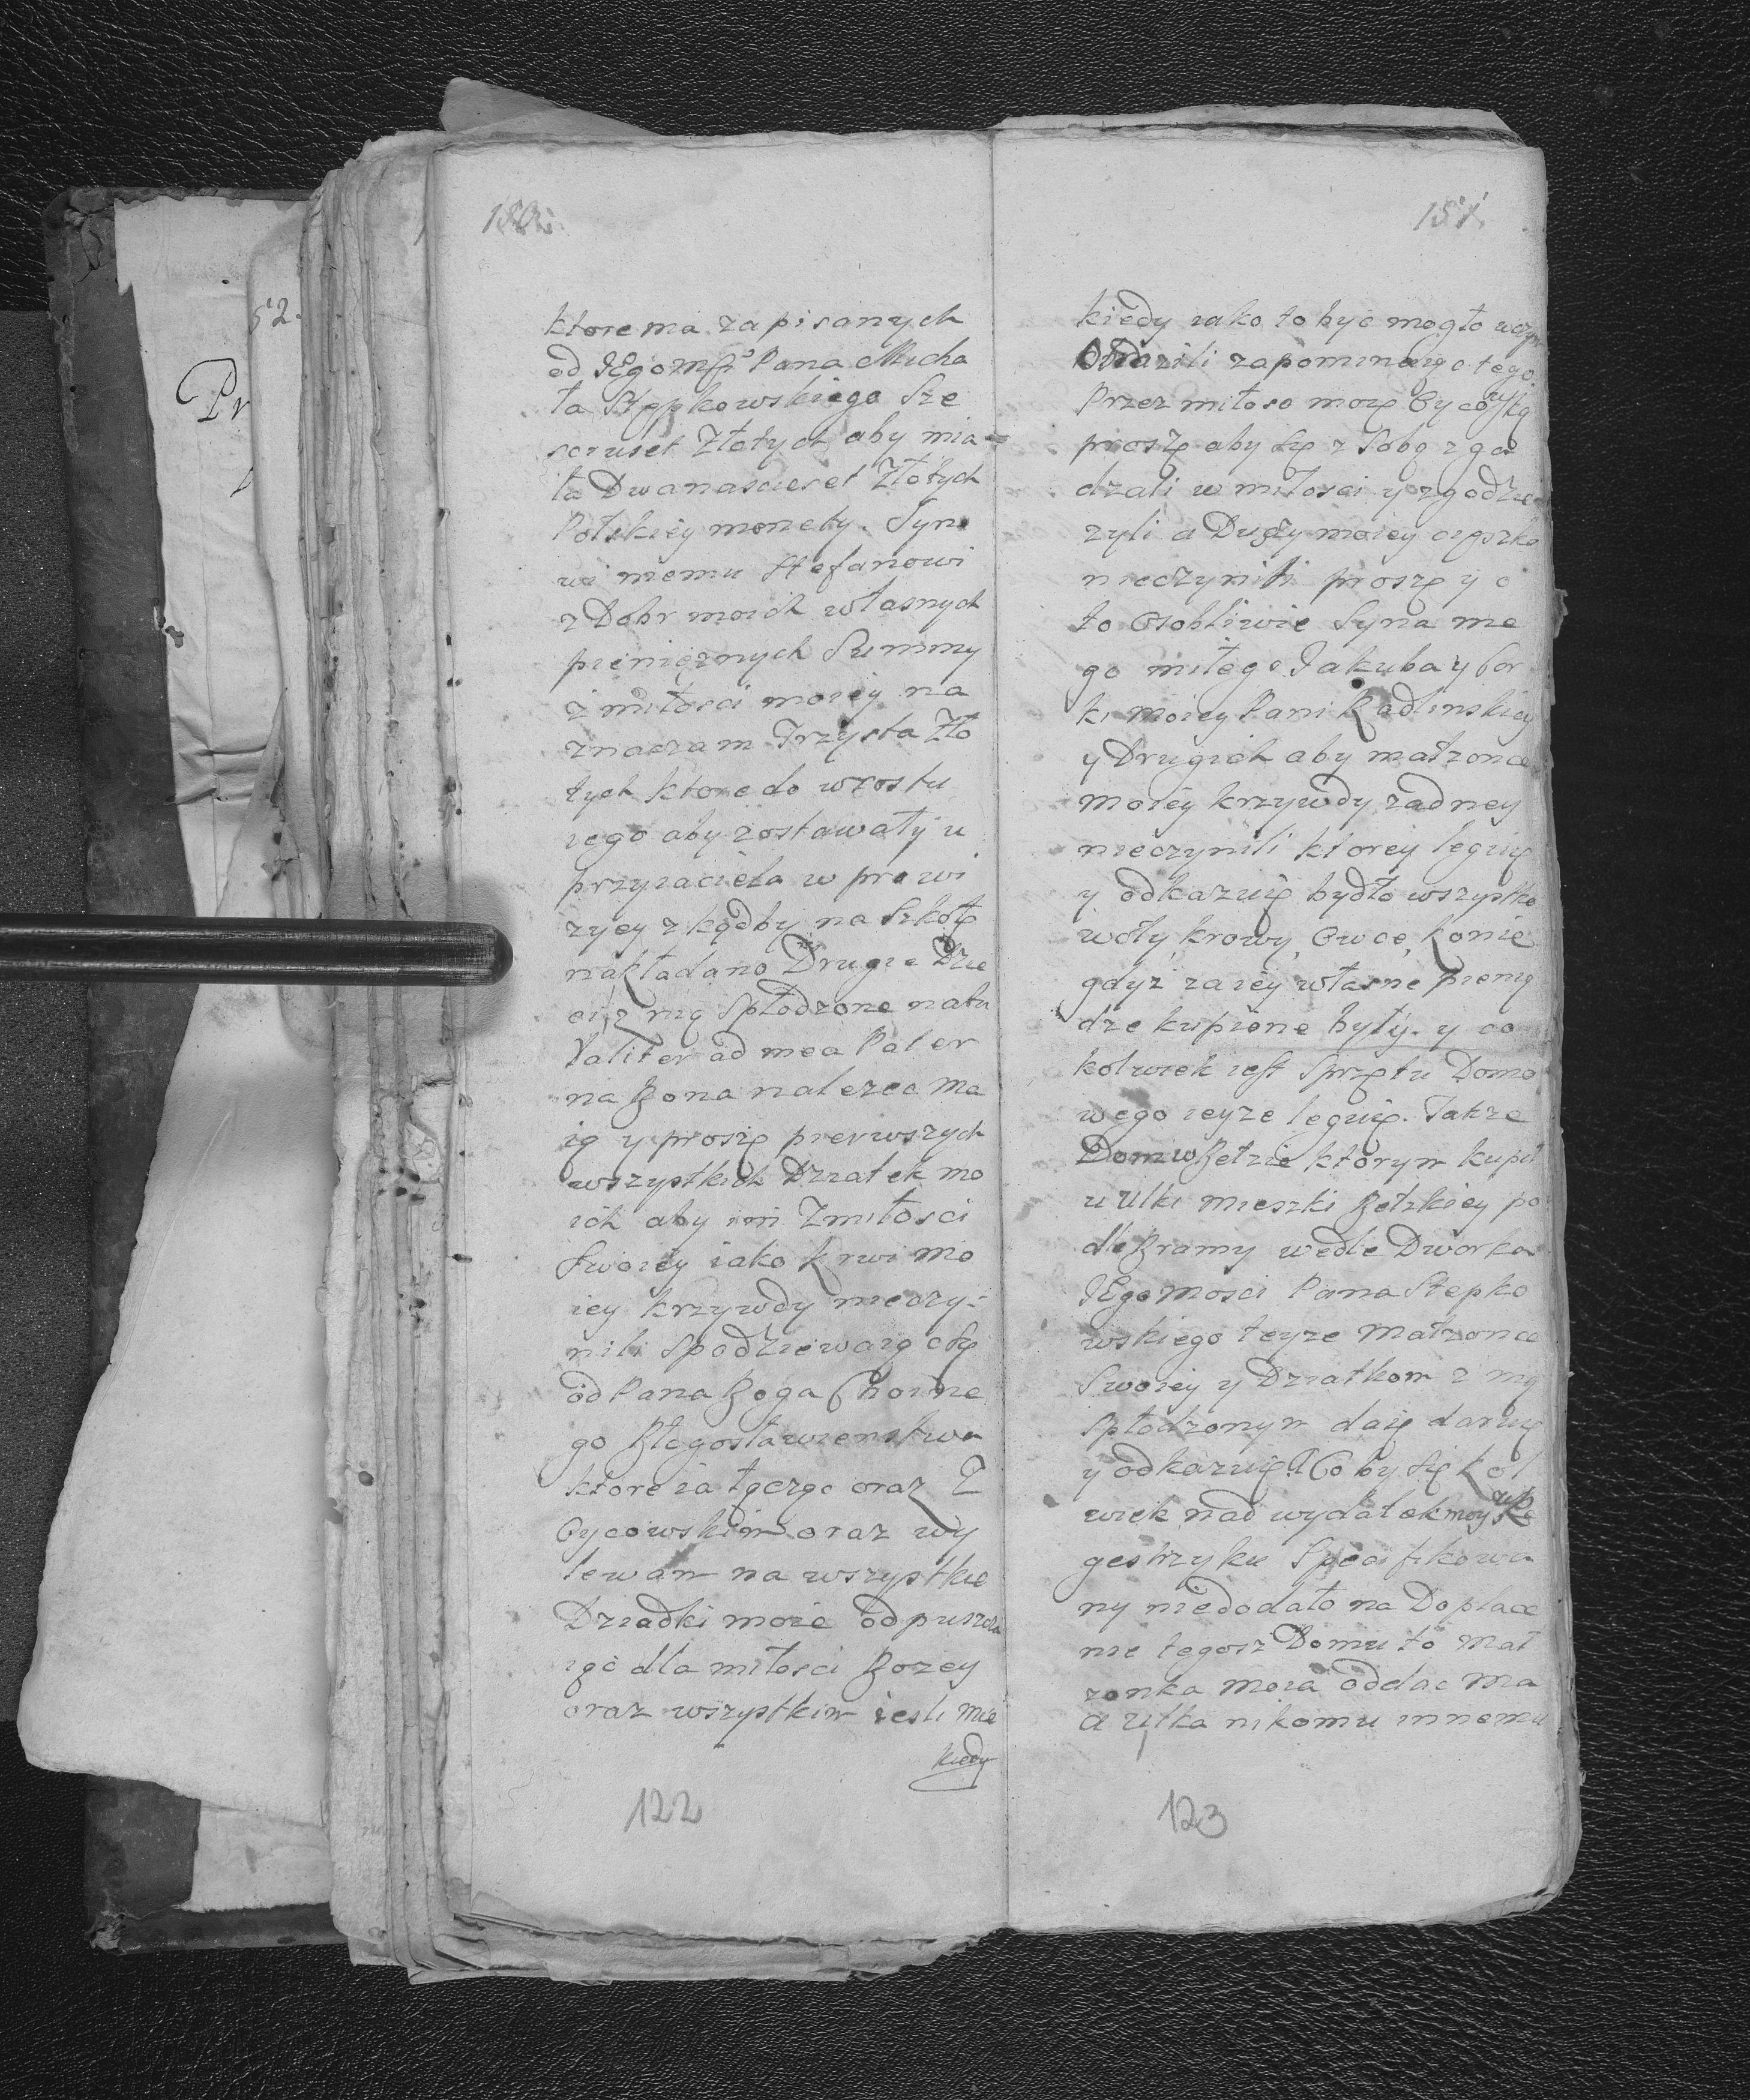 150.
ktore ma zapisanych
od JEgomsci Pana Micha
ła Stępkowskiego Sze
scruset Złotych aby mia=
ła Dwanascieset Złotych
Polskiey monety. Syno
wi memu Stefanowi
z Dobr moich własnych
pieniężnych Summy
z miłosci moiey na
znaczam Trzysta Zło
tych ktore do wzrostu
iego aby zostawały u
przyiaciela w prowi
zyey z kądby na Szkołę
nakładano Drugie Dzie
ci z nią Spłodzone natu
raliter ad mea Pater
na Bona nalezec ma
ią y proszę pierwszych
wszystkich Dziatek mo
ich aby im Zmiłosci
Swoiey iako Krwi mo
iey krzywdy nieczy=
nili Spodziewaiąc Się
od Pana Boga Choine
go Błogosławienstwa
ktore ia łączgc oraz Z
Oycowskim oraz wy
lewam na wszystkie
Dziadki moie odpuszcza
iąc dla miłosci Bozey
oraz wszystkim iesli mie
kiedy
122
151.
kiedy iako to byc mogło wczym
Obrazili zapominaiąc tego.
Przez miłosc moię Oycowską
proszę aby Się z Sobą zga
dzali w miłosci y zgodzie
zyli a Duszy moiey cięszko
nieczynili proszę y o
to Osobliwie Syna me
go miłego Jakuba y Cor
ki moiey Pani Radlinskiey
y Drugich aby małzonce
moiey krzywdy zadney
nieczynili ktorey leguię
y odkazuię bydło wszystko
woły, krowy, Owce, Konie
gdyż za iey własne pienię
dze kupione były. y co
kolwiek iest Sprzętu Domo
wego ieyze leguię. Takze
Dom w Bełzie ktorym kupił
u Ulki mieszki Bełzkiey po
dle Bramy wedle Dworka
JEgomosci Pana Stepko
wskiego teyze Małzonce
Swoiey y Dziatkom z nią
Spłodzonym daię daruię
y odkazuię. Coby Się Kol
wiek nad wydatek moy w Re
gestrzyku Specifikowa
ny niedodało na Doplace
nie tegosz Domu to Mał
zonka moia oddac Ma
a Ulka nikomu innemu
123
52.
Pr